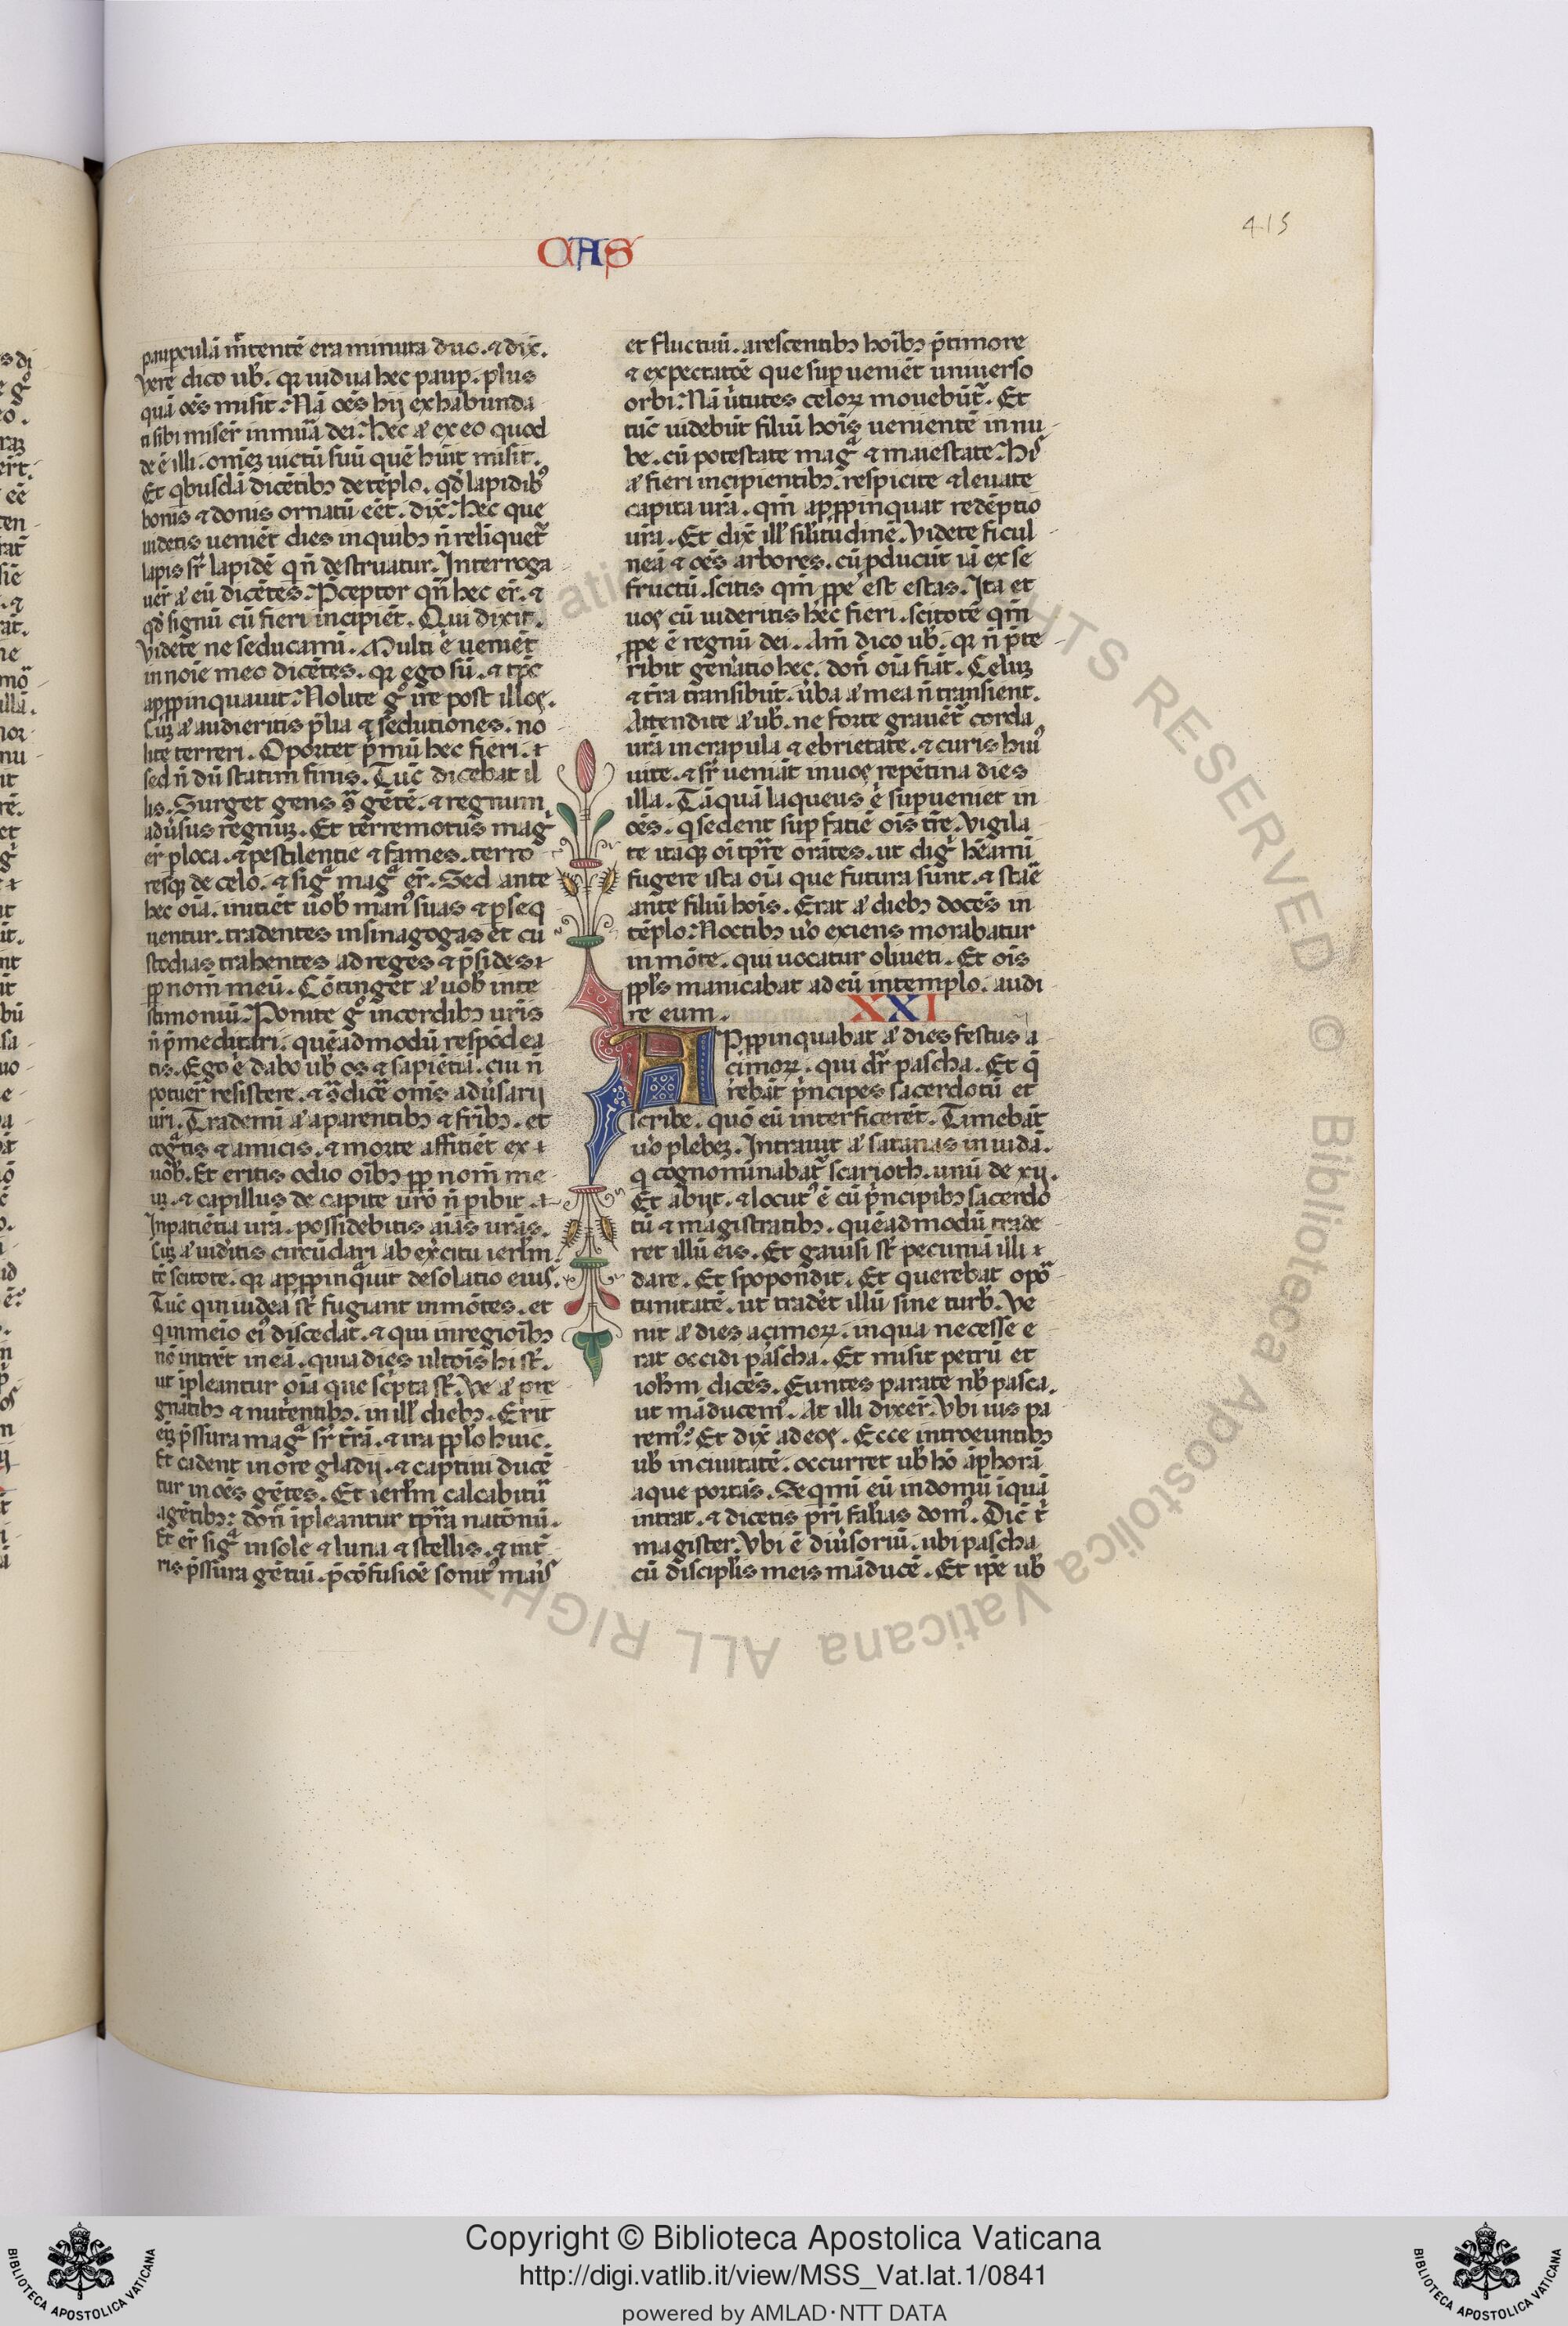 CAS
415
paupculā m̄tentē era minuta duo. ⁊ dix̄.
Vere dico ub̄. qr uidua hec paup. plus
quā oēs misit. Nā oēs hij ex habunda
ti sibi miser̄ in mun̄a dei. Hec aͤ ex eo quod
de ē illi. omēȝ uictū suū quē h̄uit misit.
Et qͥbusdā dicētibꝫ de tēplo. qd̓ lapidibꝰ
bonis ⁊ donis ornatū eēt. dix̄. Hec que
uidetis ueniēt dies in quibꝫ n̄ reliquet᷑
lapis sr̄ lapidē q n̄ destruatur. Interroga
uer̄ aͤ eū dicētes. P̄ceptor qn̄ hec er̄. ⁊
qd̓ signū cū fieri incipiēt. Qui dixit.
Videte ne seducami. Multi .n. ueniēt
in noīe meo dicētes. qr ego sū. ⁊ tp̄c
apꝓpinquauit. Nolite gͦ ire post illos.
Cuȝ aͤ audieritis p̄lia ⁊ sedutiones. no
lite terreri. Oportet p̓mū hec fieri. ⁊
sed n̄ dū statim finis. Tūc dicebat il
lis. Surget gens ͣs gētē. ⁊ regnum
adūsus regnuȝ. Et terremotus magͥ
er̄ ꝑ loca. ⁊ pestilentie ⁊ fames. terro
resqꝫ de celo. ⁊ sigͣ magͣ er̄. Sed ante
hec oīa. initiēt uob̄ manꝰ suas ⁊ ꝑseq
uentur. tradentes in sinagogas et cu
stodias trahentes ad reges ⁊ p̄sides ⁊
ꝓp nom̄ meū. Cōtinget aͤ uob̄ in te
stimoniū. Ponite gͦ in cordibꝫ ur̄is
n̄ p̄meditari. quēadmodū respōdea
tis. Ego .n. dabo ub̄ os ⁊ sapiētiā. cui n̄
potuer̄ resistere. ⁊ ͣs dice᷑ om̄s adu̓sarij
ur̄i. Trademī aͤ a parentibꝫ ⁊ fr̄ibꝫ. et
cogͣtis ⁊ amicis. ⁊ morte affitiēt ex ⁊
uob̄. Et eritis odio oībꝫ ꝓp nom̄ me
um. ⁊ capillus de capite ur̄o n̄ ꝑibit. ⁊
In patiētia ur̄a. possidebitis aīas ur̄as.
Cuȝ aͤ uid̓itis circūdari ab ex̓citu ierl̄m
tē scitote. qr apꝓpinqͣuit desolatio eius.
Tūc qui iudea st̄ fugiant in mōtes. et
q in meīo eiꝰ discedāt. ⁊ qui in regioībꝫ
nē intrēt in eā. quia dies ultōis hi st̄.
ut ipleantur oīa que sc̓pta st̄. Ve aͤ pre
gnātibꝫ ⁊ nut̓entibꝫ. in ill̄ diebꝫ. Erit
.n. p̄ssura magͣ sr̄ t̄rā. ⁊ ira ppl̄o huic.
Et cadent in ore gladij. ⁊ captiui ducē
tur in oēs gētes. Et ierl̄m calcabitu᷑
a gētibꝫ: don̄ ipleantur tp̄ra natōnū.
Et er̄ sigͣ in sole ⁊ luna ⁊ stellis. ⁊ int̄
ris p̄ssura gētiū. p̄ cōfusiōē sonitꝰ mar̓s
et fluctuū. arescentibꝫ hoībꝫ p̄ timore
⁊ expectatōē que suꝑueniēt uniuerso
orbi. Nā u̓tutes celoꝝ mouebūt᷑. Et
tūc uidebūt filiū hoīs uenientē in nu
be. cū potestate magͣ ⁊ maiestate. Hiˢ
aͤ fieri incipientibꝫ. respicite ⁊ leuate
capita ur̄a. qm̄ apꝓpinquat redēptio
ur̄a. Et dix̄ ill̄ sil̄itudinē. Videte ficul
neā ⁊ oēs arbores. cū ꝓducūt iā ex se
fructū. scitis qm̄ ꝓpe est estas. Ita et
uos cū uideritis hec fieri. scitotē qm̄
ꝓpe ē regnū dei. Am̄ dico ub̄. qr n̄ p̄te
ribit gen̓atio hec. don̄ oīa fiāt. Celuȝ
⁊ t̄ra transibūt. u̓ba aͤ mea n̄ transient.
Attendite aͤ ub̄. ne forte grauēt᷑ corda
ur̄a in crapula ⁊ ebrietate. ⁊ curis huiꝰ
uite. ⁊ sr̄ ueniāt in uos repētina dies
illa. Tāquā laqueus .n. suꝑueniet in
oēs. q sedent suꝑ fatiē oīs tr̄e. Vigila
te itaqꝫ oī tp̄re orātes. ut dig̓ h̄eami
fugere ista oīa que futura sunt. ⁊ sta᷑e
ante filiū hoīs. Erat aͤ diebꝫ docēs in
tēplo. Noctibꝫ u̓o exiens morabatur
in mōte. qui uocatur oliueti. Et oīs
ppl̄s manicabat ad eū in templo. audi
re eum. XXI
Apꝓpinquabat aͤ dies festus a
cimoꝝ. qui dr̄ pascha. Et q̄
rebāt p̓ncipes sacerdotū et
scribe. quō eū interficerēt. Timebāt
u̓o plebeȝ. Intrauit aͤ satanas in iudā.
q cognominabat᷑ scarioth. unū de xij.
Et abijt. ⁊ locutꝰ ē cū p̓ncipibꝫ sacerdo
tū ⁊ magistratibꝫ. quēadmodū trade
ret illū eis. Et gauisi st̄ pecuniā illi ⁊
dare. Et spopondit. Et querebat opo᷑
tunitatē. ut trad̓et illū sine turb̄. Ve
nit aͤ dies acimoꝝ. in qua necesse e
rat occidi pascha. Et misit petrū et
ioh̄m dicēs. Euntes parate nb̄ pasca.
ut māducemꝰ. At illi dixer̄. Vbi uis pa
remꝰ? Et dix̄ ad eos. Ecce introeuntibꝫ
ub̄ in ciuitatē. occurret ub̄ hō āphorā
aque portās. Seqmī eū in domū i quā
intrat. ⁊ dicetis pr̄i fal̄ias domꝰ. Dic̄ t̓
magister. Vbi ē diu̓soriū. ubi pascha
cū discipl̄is meis māducē. Et ip̄e ub̄
Copyright © Biblioteca Apostolica Vaticana
http://digi.vatlib.it/view/MSS_Vat.lat.1/0841
powered by AMLAD·NTT DATA
BIBLIOTECA APOSTOLICA VATICANA
BIBLIOTECA APOSTOLICA VATICANA